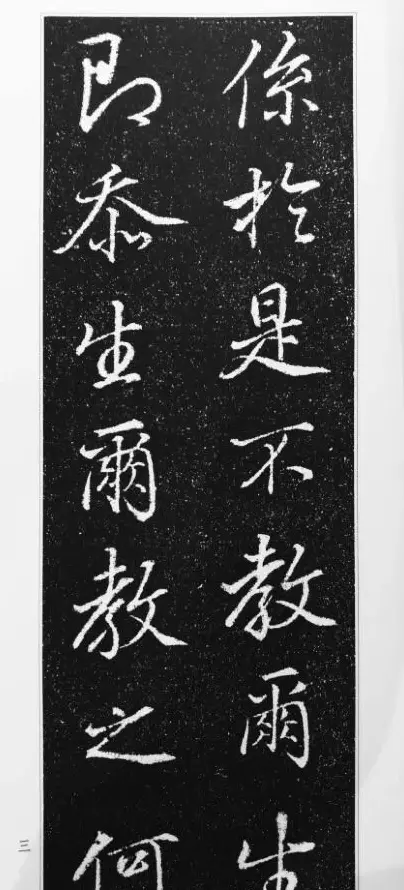 係於是不教爾生
即忝生爾教之何
三